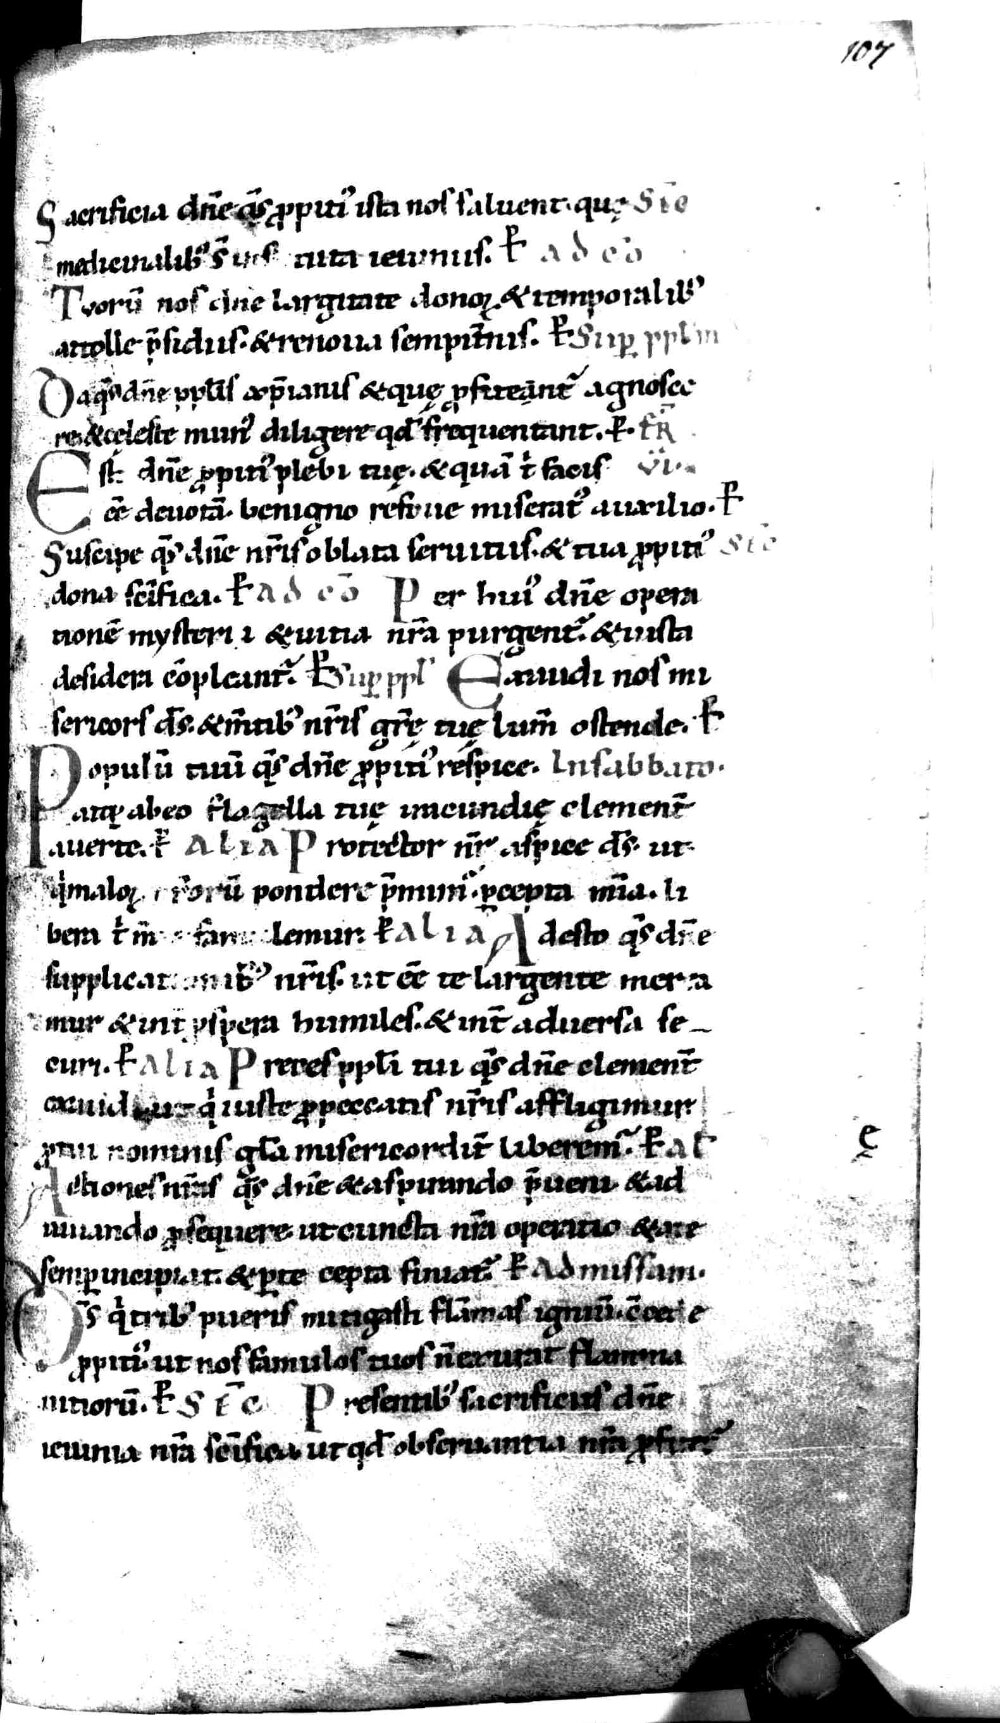 107
Sacrificia dn̄e q̄s ꝓpitiꝰ ista nos saluent. quę Stc̄
medicinalibꝰ st ieiuniis. ꝑ ad cō
Tuorū nos dn̄e largitate donoꝝ & temporalibꝰ
attolle p̄sidiis. & renoua sempit̄nis. ꝑ Suꝑ ppl̄m
Da q̄s dn̄e ppl̄is xp̄ianis & quę ꝓfiteant᷑ agnosce
re & cęleste munꝰ diligere qd̄ frequentant. ꝑ. FR̄
Est dn̄e ꝓpitiꝰ plebi tuę. & quā t̄ facis VI.
eē deuotā. benigno refoue miseratꝰ auxilio. ꝑ
Suscipe q̄s dn̄e nr̄is oblata seruitiis. & tua ꝓpitiꝰ Stc̄
dona sc̄ifica. ꝑ ad cō Per huiꝰ dn̄e opera
tionē mysterii & uitia nr̄a purgent᷑. & iusta
desideria cōpleant᷑. ꝑ Suꝑ ppl̄ Exaudi nos mi
sericors d̄s. & m̄tibꝰ nr̄is gr̄ę tuę lum̄ ostende. ꝑ
Populū tuū q̄s dn̄e ꝓpitiꝰ respice. In sabbato.
atq; ab eo flagella tuę iracundię clement̄
auerte. ꝑ alia Protector nr̄ aspice d̄s. ut
q̄ maloꝝ nr̄orū pondere p̄mim᷑. ꝑcepta mīa. li
bera t̄ m̄ famulemur. ꝑ alia Adesto q̄s dn̄e
supplicationibꝰ nr̄is. ut eē te largente merea
mur & int̄ ꝓspera humiles. & int̄ aduersa se
curi. ꝑ alia Preces ppl̄i tui q̄s dn̄e clement̄
exaudi ut q̄ iuste ꝓ peccatis nr̄is affligimur
ꝓ tui nominis gl̄a misericordit̄ liberem᷑. ꝑ al̄
Actiones nr̄as q̄s dn̄e & aspirando p̄ueni & ad
iuuando ꝓsequere ut cuncta nr̄a operatio & a te
semꝑ incipiat. & ꝑ te cepta finiat᷑. ꝑ Ad missam.
Ds̄ q̄ tribꝰ pueris mitigasti flāmas igniū. c̄cede
ꝓpitiꝰ. ut nos famulos tuos n̄ exurat flamma
uitiorū. ꝑ Stc̄ Presentibꝰ sacrificiis dn̄e
ieiunia nr̄a sc̄ifica ut qd̄ obseruantia nr̄a
ę